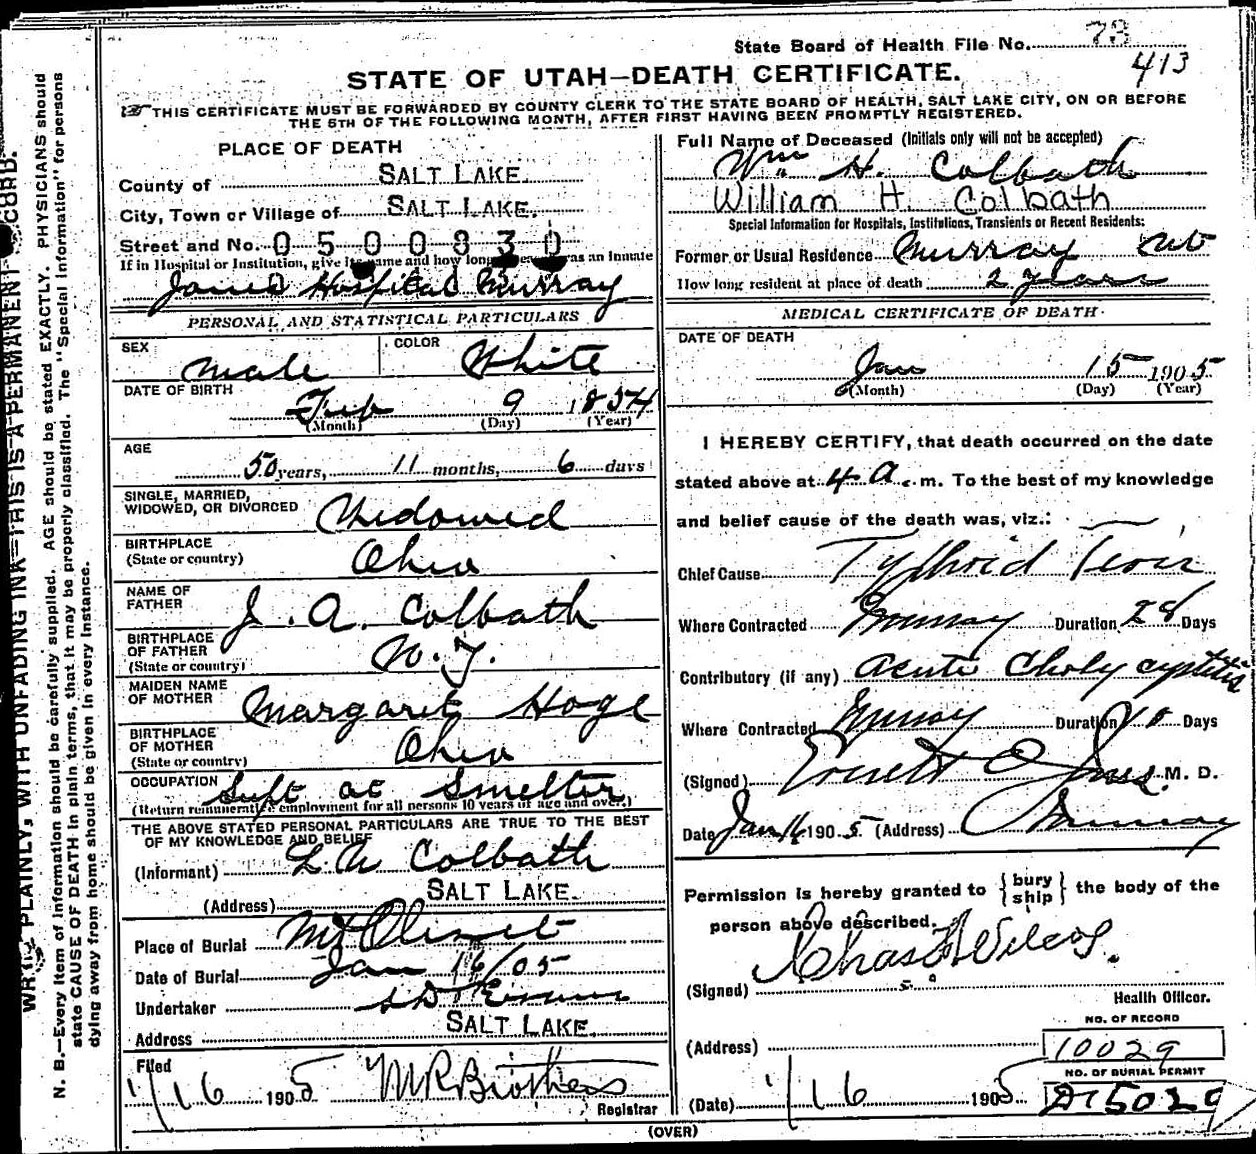 State Board of Health File No. 73
413
STATE OF UTAH—DEATH CERTIFICATE.
THIS CERTIFICATE MUST BE FORWARDED BY COUNTY CLERK TO THE STATE BOARD OF HEALTH, SALT LAKE CITY, ON OR BEFORE
THE 5TH OF THE FOLLOWING MONTH, AFTER FIRST HAVING BEEN PROMPTLY REGISTERED.
PLACE OF DEATH
County of SALT LAKE.
City, Town or Village of SALT LAKE.
Street and No. 0500830
If in Hospital or Institution, give its name and how long was an Inmate
Jones Hospital Murray
PERSONAL AND STATISTICAL PARTICULARS
SEX Male COLOR White
DATE OF BIRTH
Feb 9 1854
(Month) (Day) (Year)
AGE
50 years, 11 months, 6 days
SINGLE, MARRIED,
WIDOWED, OR DIVORCED Widowed
BIRTHPLACE
(State or country) Ohio
NAME OF
FATHER J. A. Colbath
BIRTHPLACE
OF FATHER
(State or country) N. J.
MAIDEN NAME
OF MOTHER Margaret Hoge
BIRTHPLACE
OF MOTHER
(State or country) Ohio
OCCUPATION Supt at Smelter
(Return remunerative employment for all persons 10 years of age and over.)
THE ABOVE STATED PERSONAL PARTICULARS ARE TRUE TO THE BEST
OF MY KNOWLEDGE AND BELIEF
(Informant) Colbath
(Address) SALT LAKE.
Place of Burial Mt Olivet
Date of Burial Jan 16/05
Undertaker S D Evans
Address SALT LAKE.
Filed
1/16 1905 M R Brothers
Registrar
Full Name of Deceased (Initials only will not be accepted)
Wm H. Colbath
William H. Colbath
Special Information for Hospitals, Institutions, Transients or Recent Residents:
Former or Usual Residence Murray Ut
How long resident at place of death 2 years
MEDICAL CERTIFICATE OF DEATH
DATE OF DEATH
Jan 15 1905
(Month) (Day) (Year)
I HEREBY CERTIFY, that death occurred on the date
stated above at 4 a. m. To the best of my knowledge
and belief cause of the death was, viz.:
Chief Cause Typhoid Fever
Where Contracted Murray Duration 28 Days
Contributory (if any) acute Cholycystitis
Where Contracted Murray Duration 10 Days
(Signed) Everett O Jones M. D.
Date Jan 16 1905 (Address) Murray
Permission is hereby granted to {bury ship} the body of the
person above described.
(Signed) Chas F Wilcox.
Health Officer.
NO. OF RECORD
(Address) 10029
NO. OF BURIAL PERMIT
(Date) 1/16 1905 A 5029
(OVER)
WRITE PLAINLY, WITH UNFADING INK—THIS IS A PERMANENT RECORD.
N. B.—Every item of information should be carefully supplied. AGE should be stated EXACTLY. PHYSICIANS should
state CAUSE OF DEATH in plain terms, that it may be properly classified. The "Special Information" for persons
dying away from home should be given in every instance.